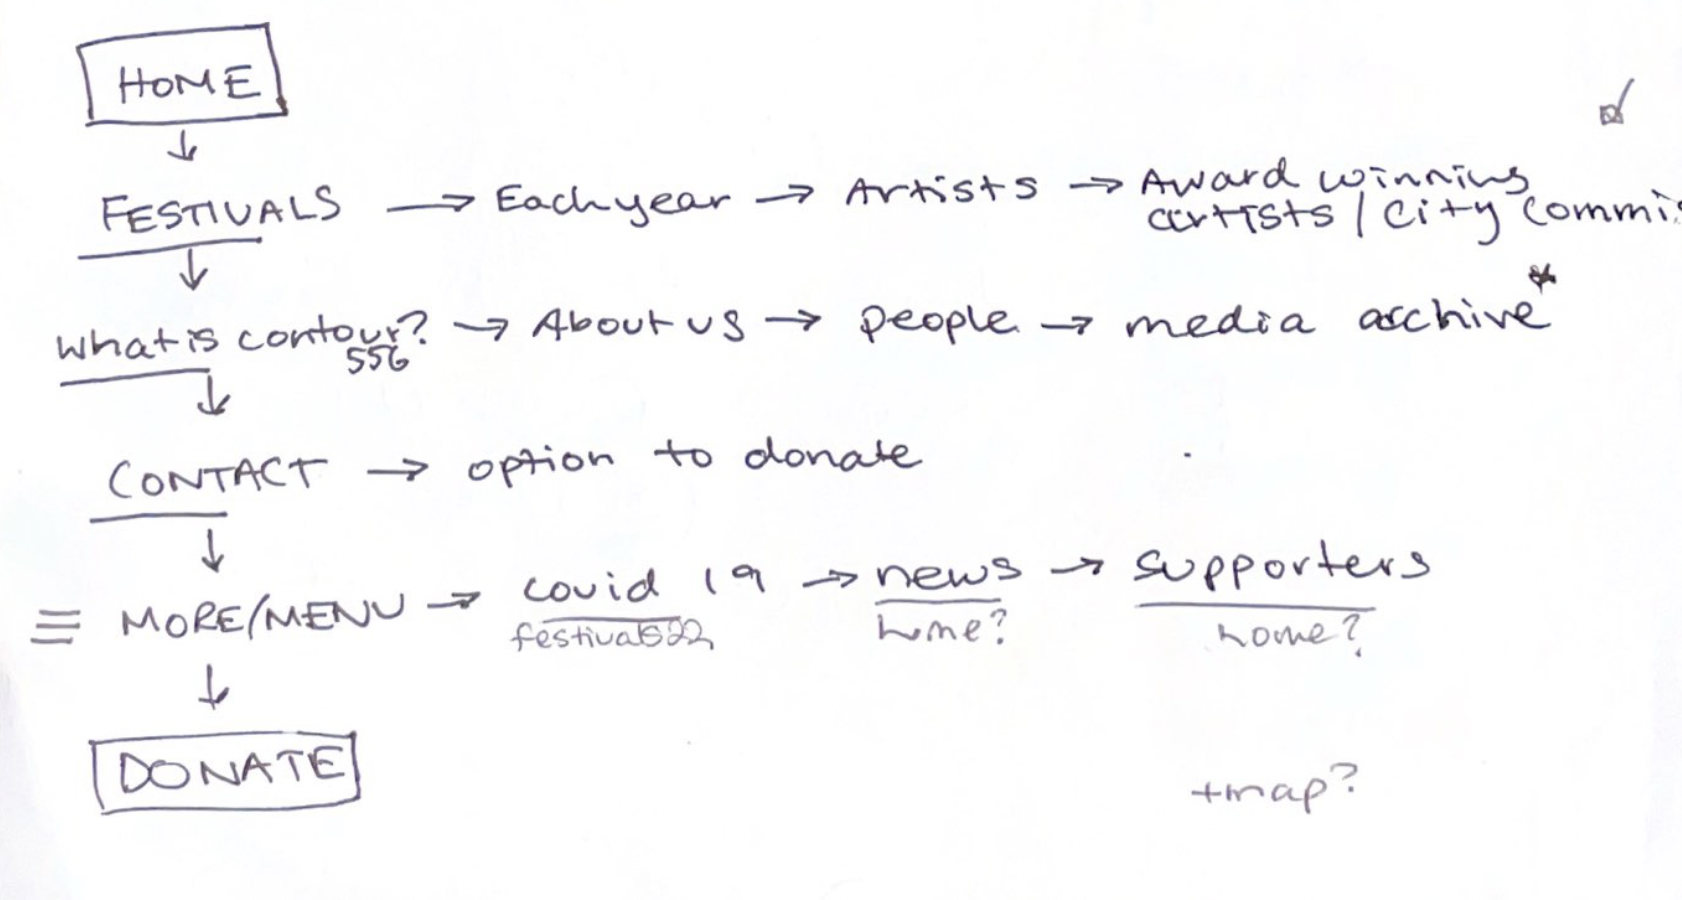 HOME
FESTIVALS → Each year → Artists → Award winning
artists / City Commis
what is contour? → About us → people → media archive*
556
CONTACT → option to donate
MORE/MENU → covid 19 → news → supporters
festivals22 home? home?
DONATE
+map?